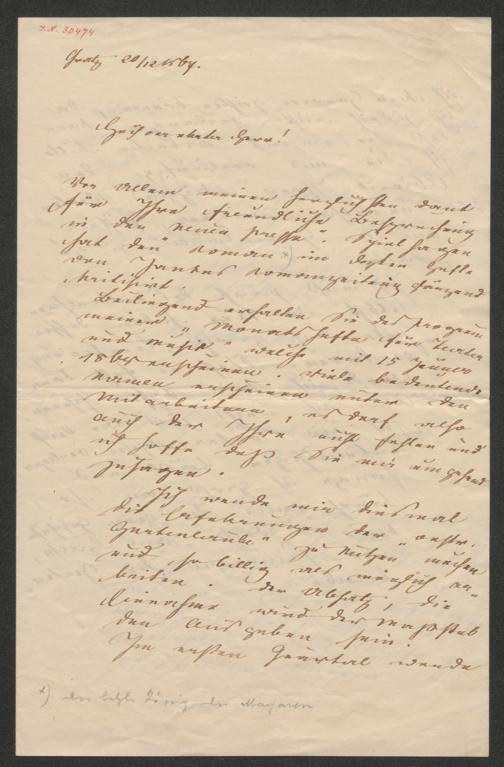 I.N. 30474
Gratz 20/12 1864.
Hochverehrter Herr!
Vor Allem meinen herzlichsten Dank
für Ihre freundliche Besprechung
in der neuen Presse. Spielhagen
hat den Roman *) im Hefte
von Jankes Romanzeitung
kritisirt.
Beiliegend erhalten Sie das Programm
meiner „Monatshefte für Theater
und Musik" welche mit 15 Jänner
1865 erscheinen. Viele bedeutende
Namen erscheinen unter den
Mitarbeitern, es darf also
auch der Ihre nicht fehlen und
ich hoffe daß Sie mir umgehend
zusagen.
Ich werde mir diesmal
die Erfahrungen der „oestr.
Gartenlaube" zu Nutzen machen
und so billig als möglich ar-
beiten. Der Absatz, die
Einnahme wird der Maßstab
der Ausgaben sein.
Im ersten Quartal werde
*) Der letzte König der Magyaren